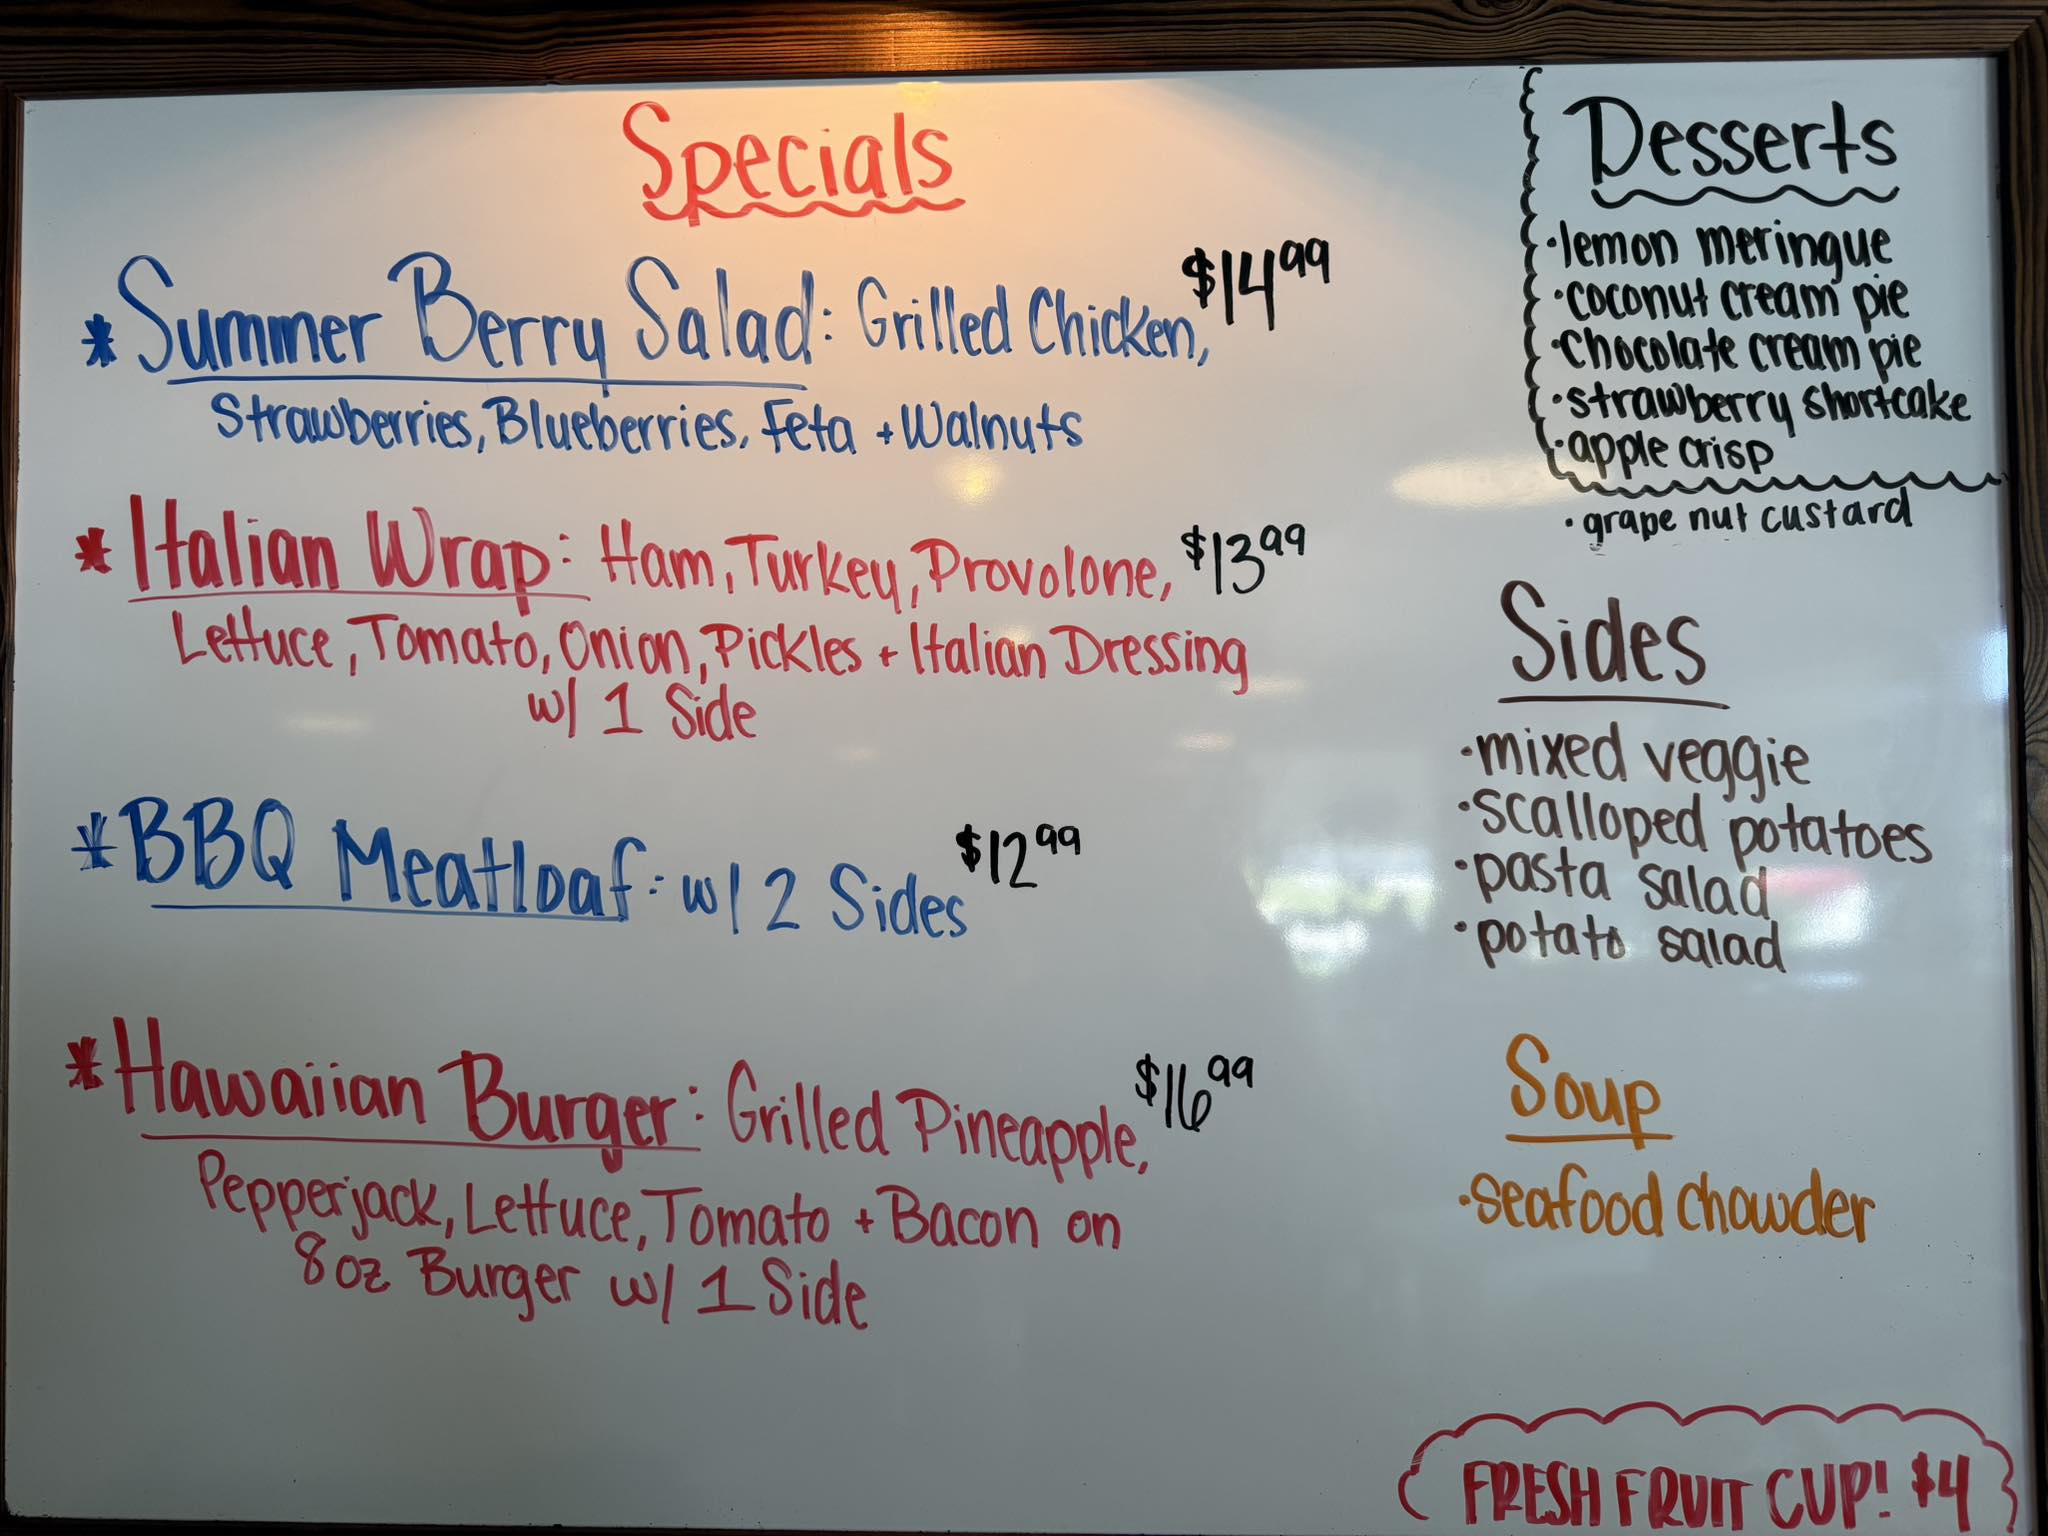 Specials
* Summer Berry Salad: Grilled Chicken, $14.99
Strawberries, Blueberries, Feta + Walnuts
* Italian Wrap: Ham, Turkey, Provolone, $13.99
Lettuce, Tomato, Onion, Pickles + Italian Dressing
w/ 1 Side
* BBQ Meatloaf: w/ 2 Sides $12.99
* Hawaiian Burger: Grilled Pineapple, $16.99
Pepperjack, Lettuce, Tomato + Bacon on
8oz Burger w/ 1 Side
Desserts
·lemon meringue
·coconut cream pie
·chocolate cream pie
·strawberry shortcake
·apple crisp
·grape nut custard
Sides
·mixed veggie
·scalloped potatoes
·pasta salad
·potato salad
Soup
·seafood chowder
FRESH FRUIT CUP! $4